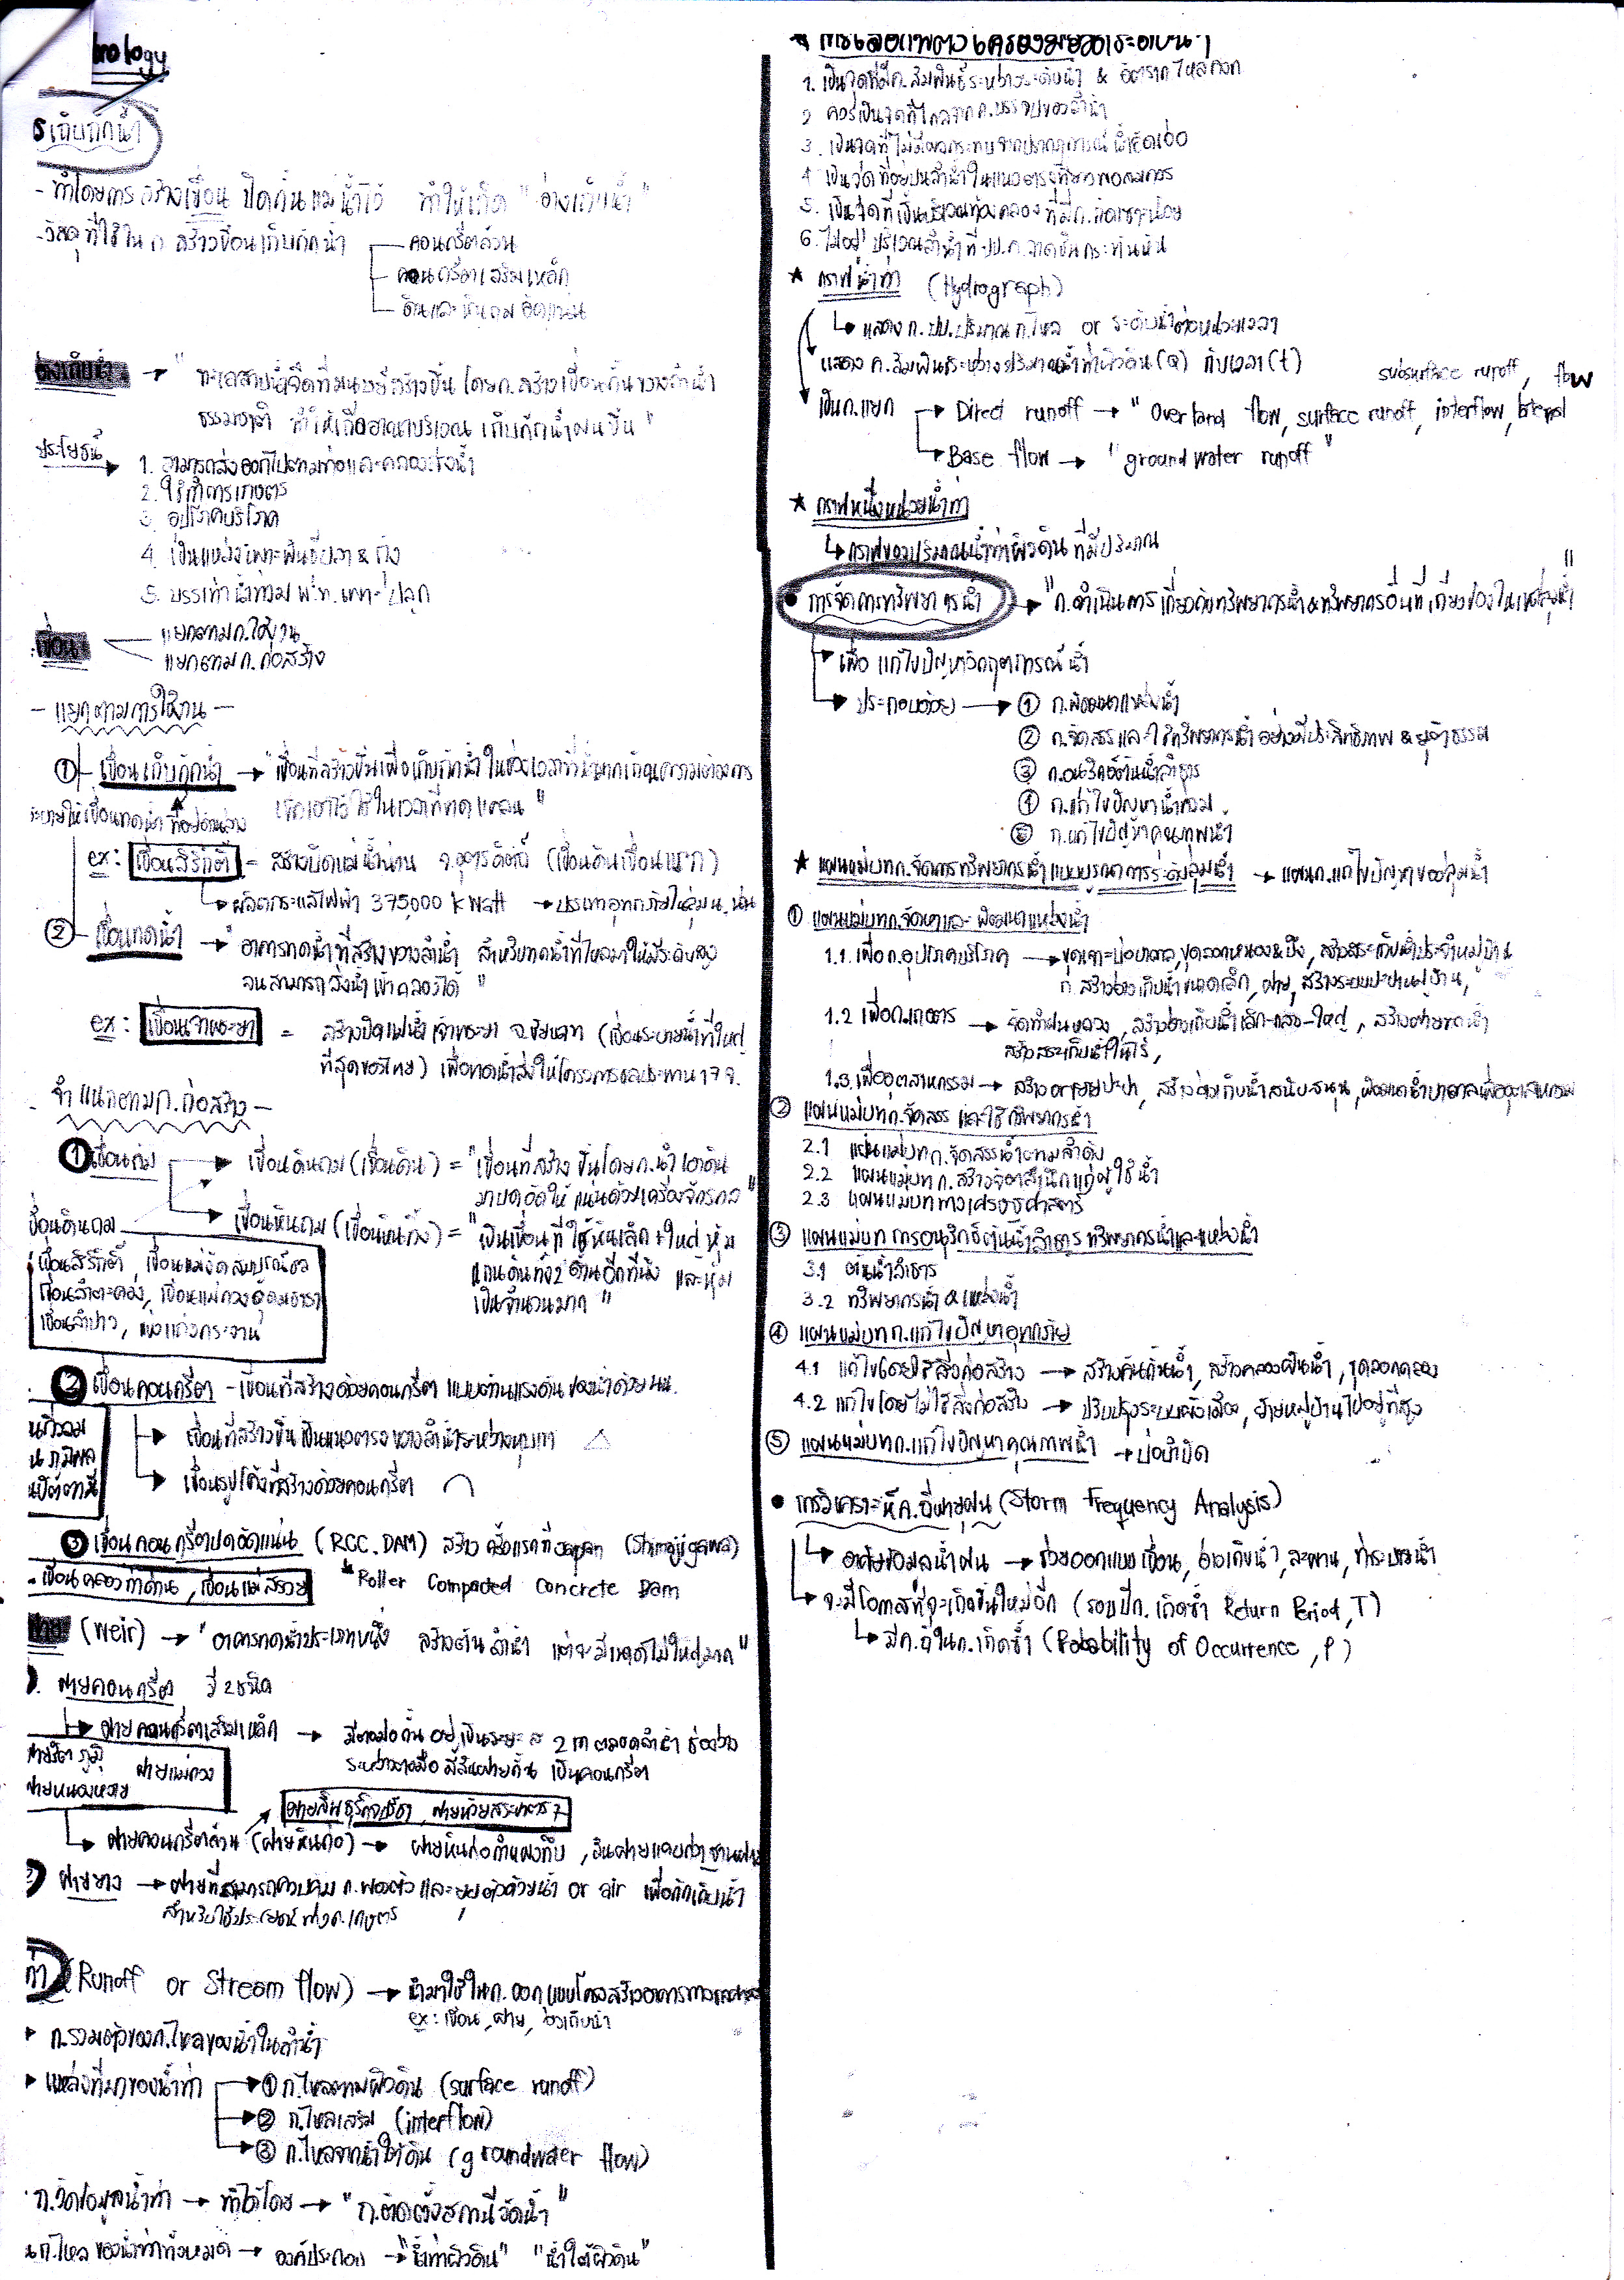 hrology
รเก็บกักน้ำ
- ทำโดยการ สร้างเขื่อน ปิดกั้นแม่น้ำไว้ ทำให้เกิด "อ่างเก็บน้ำ"
- วัสดุที่ใช้ใน ก. สร้างเขื่อนเก็บกักน้ำ
คอนกรีตล้วน
คอนกรีตเสริมเหล็ก
ดินและหินถมอัดแน่น
อ่างเก็บน้ำ → " ทะเลสาบน้ำจืดที่มนุษย์สร้างขึ้น โดยก.สร้างเขื่อนกั้นขวางลำน้ำ
ธรรมชาติ ทำให้เกิดอาณาบริเวณ เก็บกักน้ำฝนขึ้น "
ประโยชน์
1. สามารถส่งออกไปตามท่อและคลองส่งน้ำ
2. ใช้ทำการเกษตร
3. อุปโภคบริโภค
4. เป็นแหล่งเพาะพันธุ์ปลา & กุ้ง
5. บรรเทาน้ำท่วม พ.ท. เพาะปลูก
เขื่อน
แยกตามก.ใช้งาน
แยกตามก. ก่อสร้าง
- แยกตามการใช้งาน -
① เขื่อนเก็บกักน้ำ → "เขื่อนที่สร้างขึ้นเพื่อเก็บกักน้ำ ในช่วงเวลาที่น้ำมากเกินความต้องการ
เก็บเอาไว้ใช้ในเวลาที่ขาดแคลน "
ระบายให้เขื่อนทดน้ำ ที่อยู่ด้านล่าง
ex: เขื่อนสิริกิติ์ = สร้างปิดแม่น้ำน่าน จ.อุตรดิตถ์ (เขื่อนดินเขื่อนแรก)
ผลิตกระแสไฟฟ้า 375,000 k watt → บรรเทาอุทกภัยในลุ่ม น. น่าน
② เขื่อนทดน้ำ → "อาคารทดน้ำที่สร้างขวางลำน้ำ สำหรับทดน้ำที่ไหลมาให้มีระดับสูง
จนสามารถ ส่งน้ำเข้าคลองได้ "
ex: เขื่อนเจ้าพระยา = สร้างปิดแม่น้ำเจ้าพระยา จ.ชัยนาท (เขื่อนระบายน้ำที่ใหญ่
ที่สุดของไทย) เพื่อทดน้ำส่งให้โครงการชลประทาน 17 จ.
- จำแนกตามก.ก่อสร้าง -
① เขื่อนถม
เขื่อนดินถม (เขื่อนดิน) = "เขื่อนที่สร้างขึ้นโดยก.นำเอาดิน
มาบดอัดให้แน่นด้วยเครื่องจักรกล "
เขื่อนหินถม (เขื่อนหินทิ้ง) = "เป็นเขื่อนที่ใช้หินเล็ก+ใหญ่ หุ้ม
แกนดินทั้ง 2 ด้านอีกทีนึง และหุ้ม
เป็นจำนวนมาก "
เขื่อนดินถม
เขื่อนสิริกิติ์, เขื่อนแม่งัดสมบูรณ์ชล
เขื่อนลำตะคอง, เขื่อนแม่กวงอุดมธารา
เขื่อนลำปาว, แก่งกระจาน
② เขื่อนคอนกรีต - เขื่อนที่สร้างด้วยคอนกรีต แบบต้านแรงดันของน้ำด้วย นน.
เขื่อนที่สร้างขึ้นเป็นแนวตรงขวางลำน้ำระหว่างหุบเขา
เขื่อนรูปโค้งที่สร้างด้วยคอนกรีต
นกิ่วลม
นภูมิพล
นปัตตานี
③ เขื่อนคอนกรีตบดอัดแน่น (RCC. DAM) สร้างครั้งแรกที่ Japan (Shimajigawa)
- เขื่อนคลองท่าด่าน, เขื่อนแม่สรวย
*Roller Compacted Concrete Dam
ฝาย (weir) → "อาคารทดน้ำประเภทหนึ่ง สร้างต้นลำน้ำ แต่จะมีขนาดไม่ใหญ่มาก "
ฝายคอนกรีต มี 2 ชนิด
ฝายคอนกรีตเสริมเหล็ก → มีตอม่อกั้นอยู่เป็นระยะๆ 2 m ตลอดลำน้ำ ช่องว่าง
ระหว่างตอม่อ มีสันฝายกั้น เป็นคอนกรีต
ฝายแม่กวง
ฝายหนองหวาย
ฝายสินธุกิจปรีชา, ฝายห้วยสระบาตร 7
ฝายคอนกรีตล้วน (ฝายหินก่อ) → ฝายหินก่อกำแพงทึบ, สันฝายแคบกว่าฐานฝาย
ฝายยาง → ฝายที่สามารถควบคุม ก.พองตัว และยุบตัวด้วยน้ำ or air เพื่อกักเก็บน้ำ
สำหรับใช้ประโยชน์ทางก.เกษตร
ท่า (Runoff or Stream flow) → นำมาใช้ในก.ออกแบบโครงสร้างอาคารทาง
ex: เขื่อน, ฝาย, อ่างเก็บน้ำ
ก.รวมตัวของก.ไหลของน้ำในลำน้ำ
แหล่งที่มาของน้ำท่า
① ก.ไหลตามผิวดิน (surface runoff)
② ก.ไหลเสริม (interflow)
③ ก.ไหลจากน้ำใต้ดิน (groundwater flow)
ก.วัดข้อมูลน้ำท่า → ทำได้โดย → "ก.ติดตั้งสถานีวัดน้ำ"
นก.ไหลของน้ำท่าทั้งหมด → องค์ประกอบ → "น้ำท่าผิวดิน" "น้ำใต้ผิวดิน"
1. เป็นจุดที่มีก.สัมพันธ์ระหว่างระดับน้ำ & อัตราก.ไหลคงที่
2. ควรเป็นจุดที่ไกลจากก.บรรจบของลำน้ำ
3. เป็นจุดที่ไม่มีผลกระทบจากปรากฏการณ์น้ำเอ่อ
4. เป็นจุดที่อยู่บนลำน้ำในแนวตรงที่ยาวพอสมควร
5. เป็นจุดที่เป็นบริเวณท้องคลองที่มีก.กัดเซาะน้อย
6. ไม่อยู่บริเวณลำน้ำที่ ปป.ค.ลาดชันกระทันหัน
★ กราฟน้ำท่า (Hydrograph)
แสดง ก. ปป. ปริมาณ ก.ไหล or ระดับน้ำต่อหน่วยเวลา
แสดง ค.สัมพันธ์ระหว่างปริมาณน้ำท่าผิวดิน (Q) กับเวลา (t)
subsurface runoff, flow
เป็นก.แยก
Direct runoff → "Overland flow, surface runoff, interflow, lateral
Base flow → "groundwater runoff"
★ กราฟหนึ่งหน่วยน้ำท่า
กราฟของปริมาณน้ำท่าผิวดิน ที่มีปริมาณ
• การจัดการทรัพยากรน้ำ → "ก.ดำเนินการเกี่ยวกับทรัพยากรน้ำ & ทรัพยากรอื่นที่เกี่ยวข้องในเขตลุ่มน้ำ"
เพื่อ แก้ไขปัญหาวิกฤตการณ์น้ำ
ประกอบด้วย
① ก.พัฒนาแหล่งน้ำ
② ก.จัดสรรและใช้ทรัพยากรน้ำอย่างมีประสิทธิภาพ & ยุติธรรม
③ ก.อนุรักษ์ต้นน้ำลำธาร
④ ก.แก้ไขปัญหาน้ำท่วม
⑤ ก.แก้ไขปัญหาคุณภาพน้ำ
★ แผนแม่บทก.จัดการทรัพยากรน้ำแบบบูรณาการระดับลุ่มน้ำ → แผนก.แก้ไขปัญหาของลุ่มน้ำ
① แผนแม่บทก.จัดหาและพัฒนาแหล่งน้ำ
1.1 เพื่อก.อุปโภคบริโภค → ขุดเจาะบ่อบาดาล, ขุดลอกหนอง&บึง, สร้างสระเก็บน้ำประจำหมู่บ้าน
ก.สร้างอ่างเก็บน้ำขนาดเล็ก, ฝาย, สร้างระบบประปาหมู่บ้าน,
1.2 เพื่อก.เกษตร → จัดทำฝนหลวง, สร้างอ่างเก็บน้ำเล็ก-กลาง-ใหญ่, สร้างฝายทดน้ำ
สร้างสระเก็บน้ำในไร่,
1.3 เพื่ออุตสาหกรรม → สร้าง ประปา, สร้างอ่างเก็บน้ำสนับสนุน, พัฒนาน้ำบาดาลเพื่ออุตสาหกรรม
② แผนแม่บทก.จัดสรร และใช้ทรัพยากรน้ำ
2.1 แผนแม่บทก.จัดสรรน้ำตามลำดับ
2.2 แผนแม่บทก.สร้างจิตสำนึกแก่ผู้ใช้น้ำ
2.3 แผนแม่บททางเศรษฐศาสตร์
③ แผนแม่บทการอนุรักษ์ต้นน้ำลำธาร ทรัพยากรน้ำและแหล่งน้ำ
3.1 ต้นน้ำลำธาร
3.2 ทรัพยากรน้ำ & แหล่งน้ำ
④ แผนแม่บทก.แก้ไขปัญหาอุทกภัย
4.1 แก้ไขโดยใช้สิ่งก่อสร้าง → สร้างคันกั้นน้ำ, สร้างคลองผันน้ำ, ขุดลอกคลอง
4.2 แก้ไขโดยไม่ใช้สิ่งก่อสร้าง → ปรับปรุงระบบผังเมือง, ย้ายหมู่บ้านไปอยู่ที่สูง
⑤ แผนแม่บทก.แก้ไขปัญหาคุณภาพน้ำ → บ่อบำบัด
• การวิเคราะห์ค.ถี่พายุฝน (Storm Frequency Analysis)
อาศัยข้อมูลน้ำฝน → ช่วยออกแบบเขื่อน, อ่างเก็บน้ำ, สะพาน, ท่อระบายน้ำ
จะมีโอกาสที่จะเกิดขึ้นใหม่อีก (รอบปีก.เกิดซ้ำ Return Period, T)
มีค.ถี่ในก.เกิดซ้ำ (Probability of Occurrence, P)